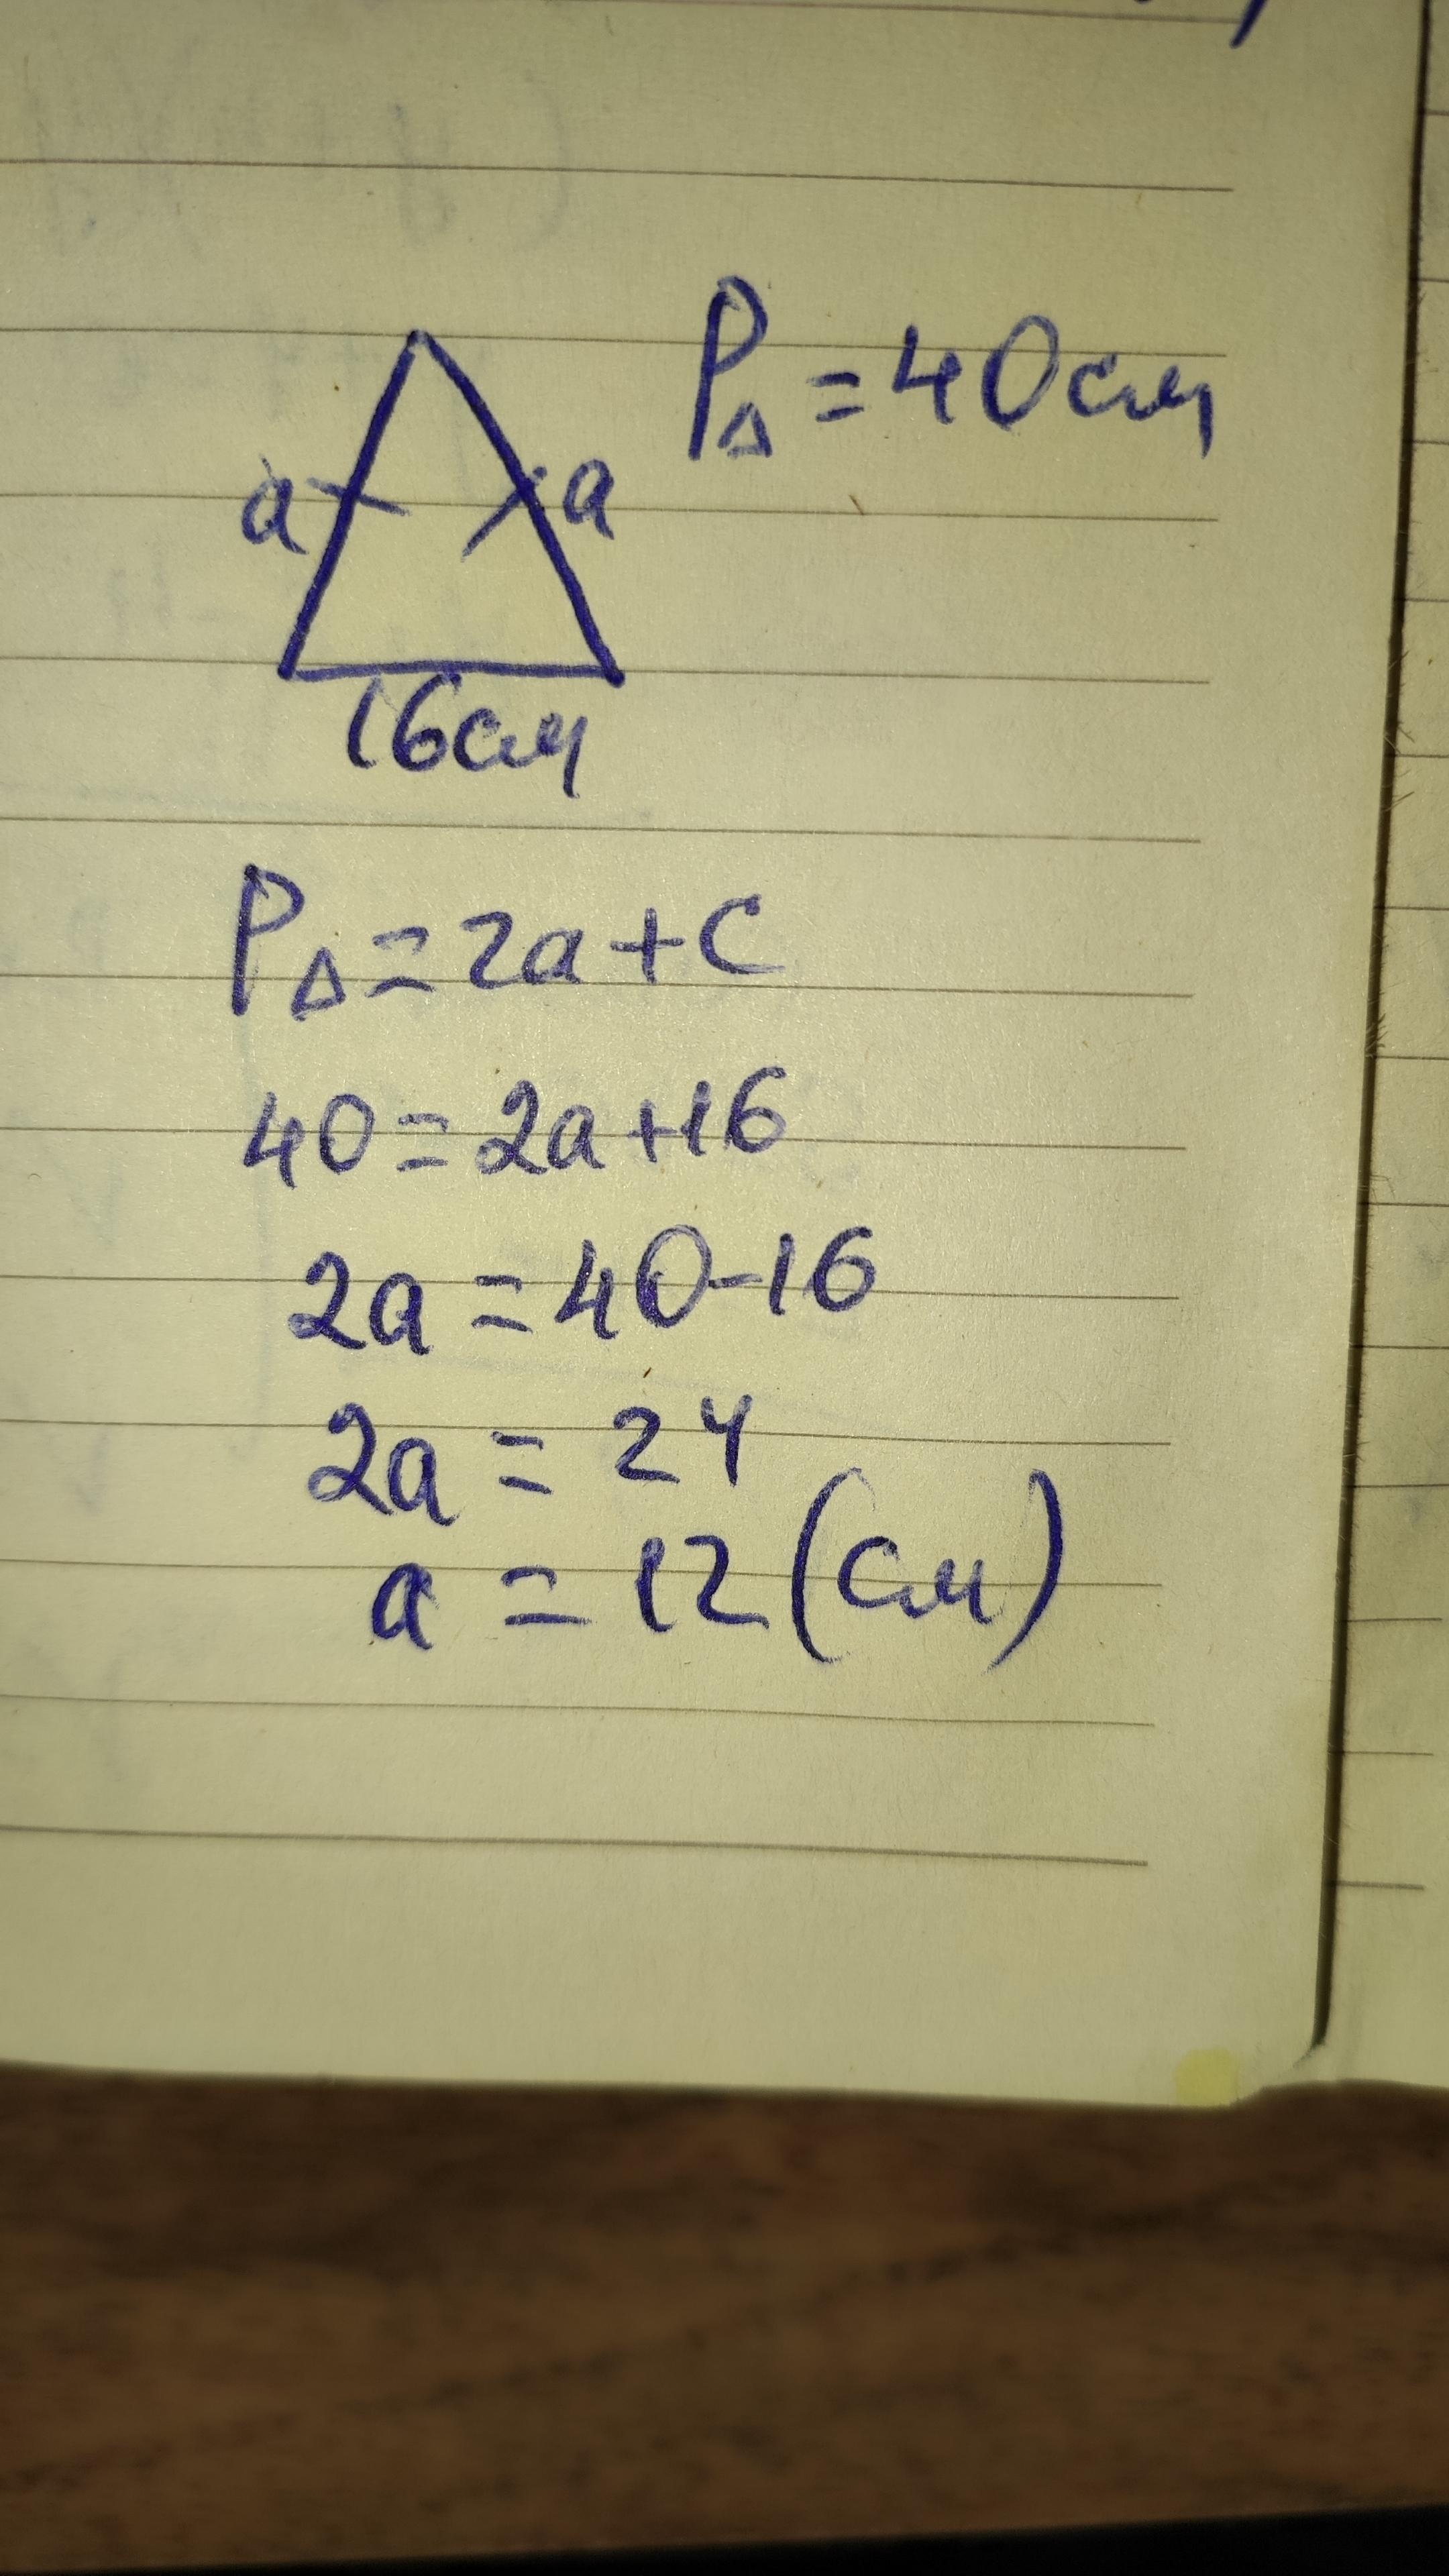 P△ = 40см
a a
16см
P△ = 2a + c
40 = 2a + 16
2a = 40 - 16
2a = 24
a = 12 (см)